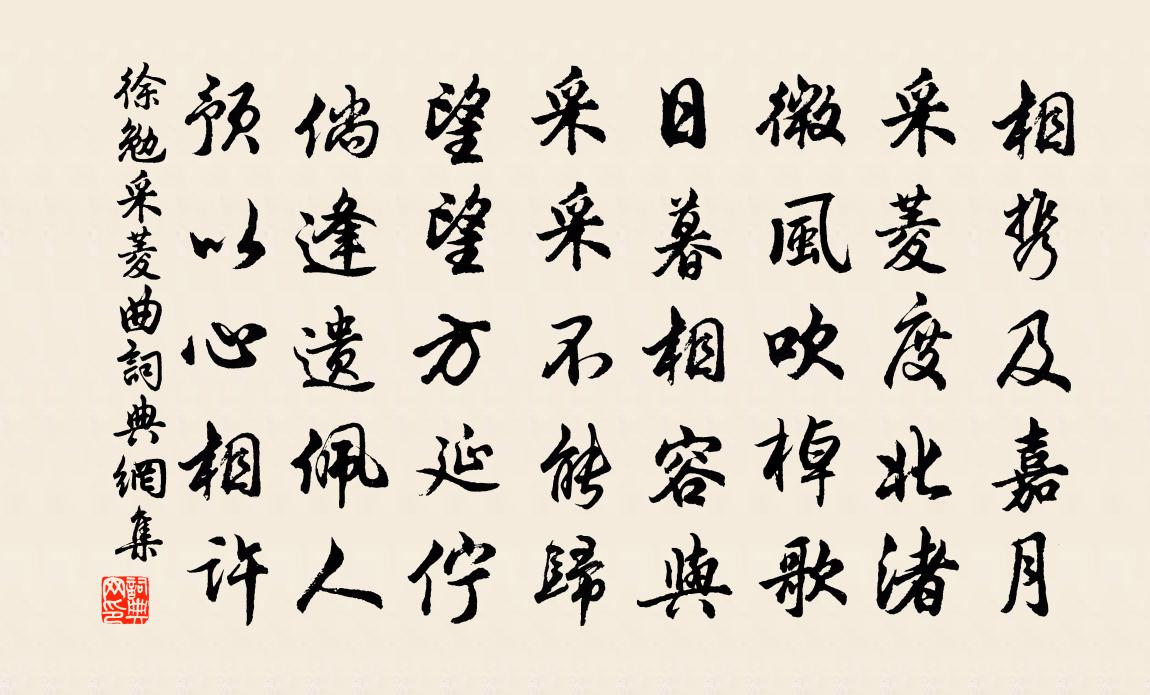 相携及嘉月
采菱度北渚
微風吹棹歌
日暮相容與
采采不能歸
望望方延佇
倘逢遺佩人
預以心相許
徐勉采菱曲詞典網集
詞典網印